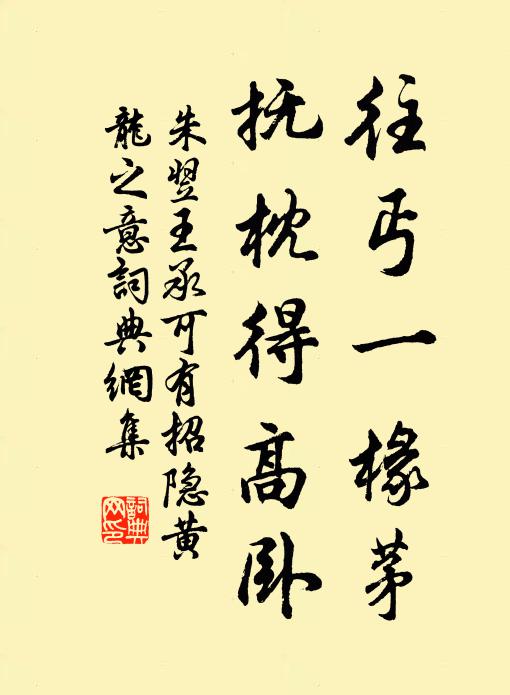 往丐一椽茅
抚枕得高卧
朱翌王承可有招隐黄
龍之意詞典網集
詞典
网印